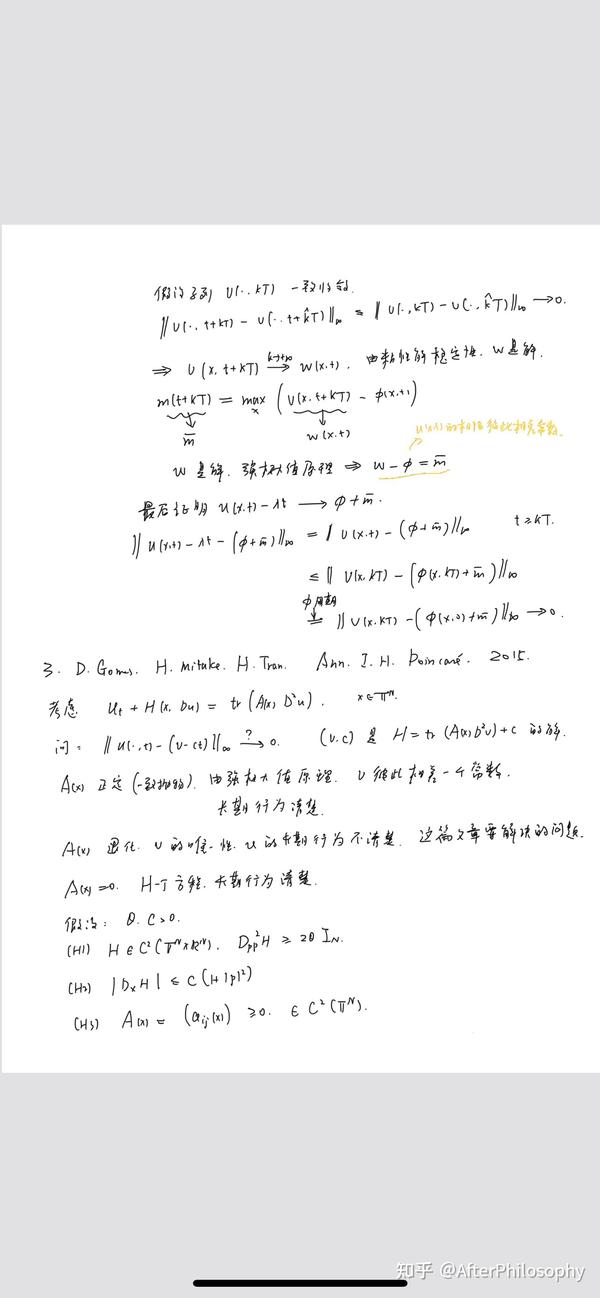 假设子列 U(·,kT) 一致收敛.
‖U(·,t+kT) − U(·,t+k̂T)‖∞ ≤ ‖U(·,kT) − U(·,k̂T)‖∞ → 0.
⇒ U(x,t+kT) —k→+∞→ w(x,t). 由粘性解稳定性, w是解.
m(t+kT) = max_x (U(x,t+kT) − ϕ(x,t))
m̄ w(x,t)
的相互彼此相差常数.
w 是解, 强极值原理 ⇒ w − ϕ = m̄
最后证明 u(x,t) − λt → ϕ + m̄.
‖u(x,t) − λt − (ϕ+m̄)‖∞ = ‖U(x,t) − (ϕ+m̄)‖∞ t ≥ kT.
≤ ‖U(x,kT) − (ϕ(x,kT)+m̄)‖∞
ϕ周期
= ‖U(x,kT) − (ϕ(x,0)+m̄)‖∞ → 0.
3. D. Gomes. H. Mitake. H. Tran. Ann. I. H. Poincaré. 2015.
考虑 u_t + H(x,Du) = tr(A(x)D²u). x∈𝕋ᴺ.
问: ‖u(·,t) − (v−ct)‖∞ —?→ 0. (v,c) 是 H = tr(A(x)D²v)+c 的解.
A(x) 正定(一致椭圆). 由强极大值原理. v 彼此相差一个常数.
长期行为清楚.
A(x) 退化. v的唯一性, u的长期行为不清楚. 这篇文章要解决的问题.
A(x)=0. H-J方程. 长期行为清楚.
假设: θ, C>0.
(H1) H∈C²(𝕋ᴺ×ℝᴺ). D²ₚₚH ≥ 2θ I_N.
(H2) |DₓH| ≤ C(1+|p|²)
(H3) A(x) = (a_ij(x)) ≥0. ∈C²(𝕋ᴺ).
知乎 @AfterPhilosophy